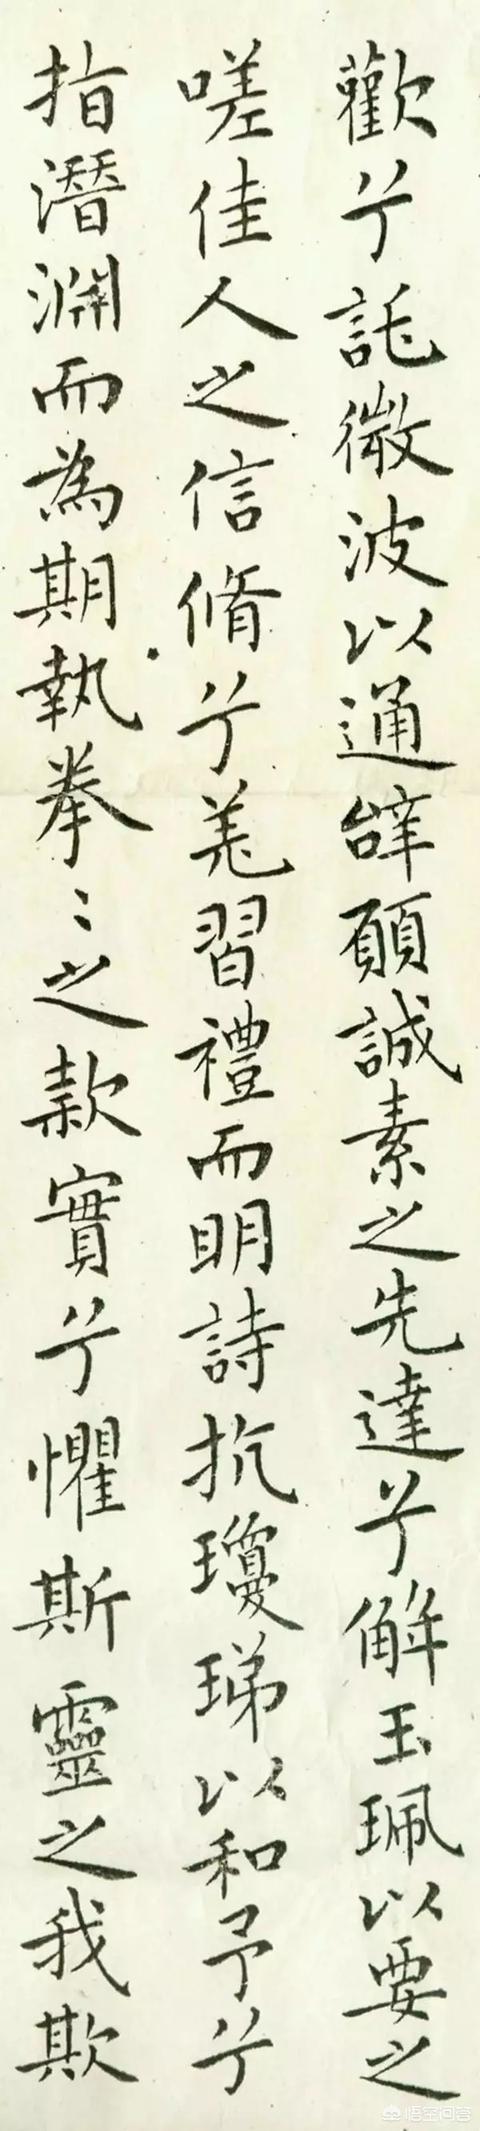 歡兮託微波以通辭願誠素之先達兮解玉珮以要之
嗟佳人之信脩兮羌習禮而明詩抗瓊珶以和予兮
指潛淵而為期執拳〻之款實兮懼斯靈之我欺
悟空问答